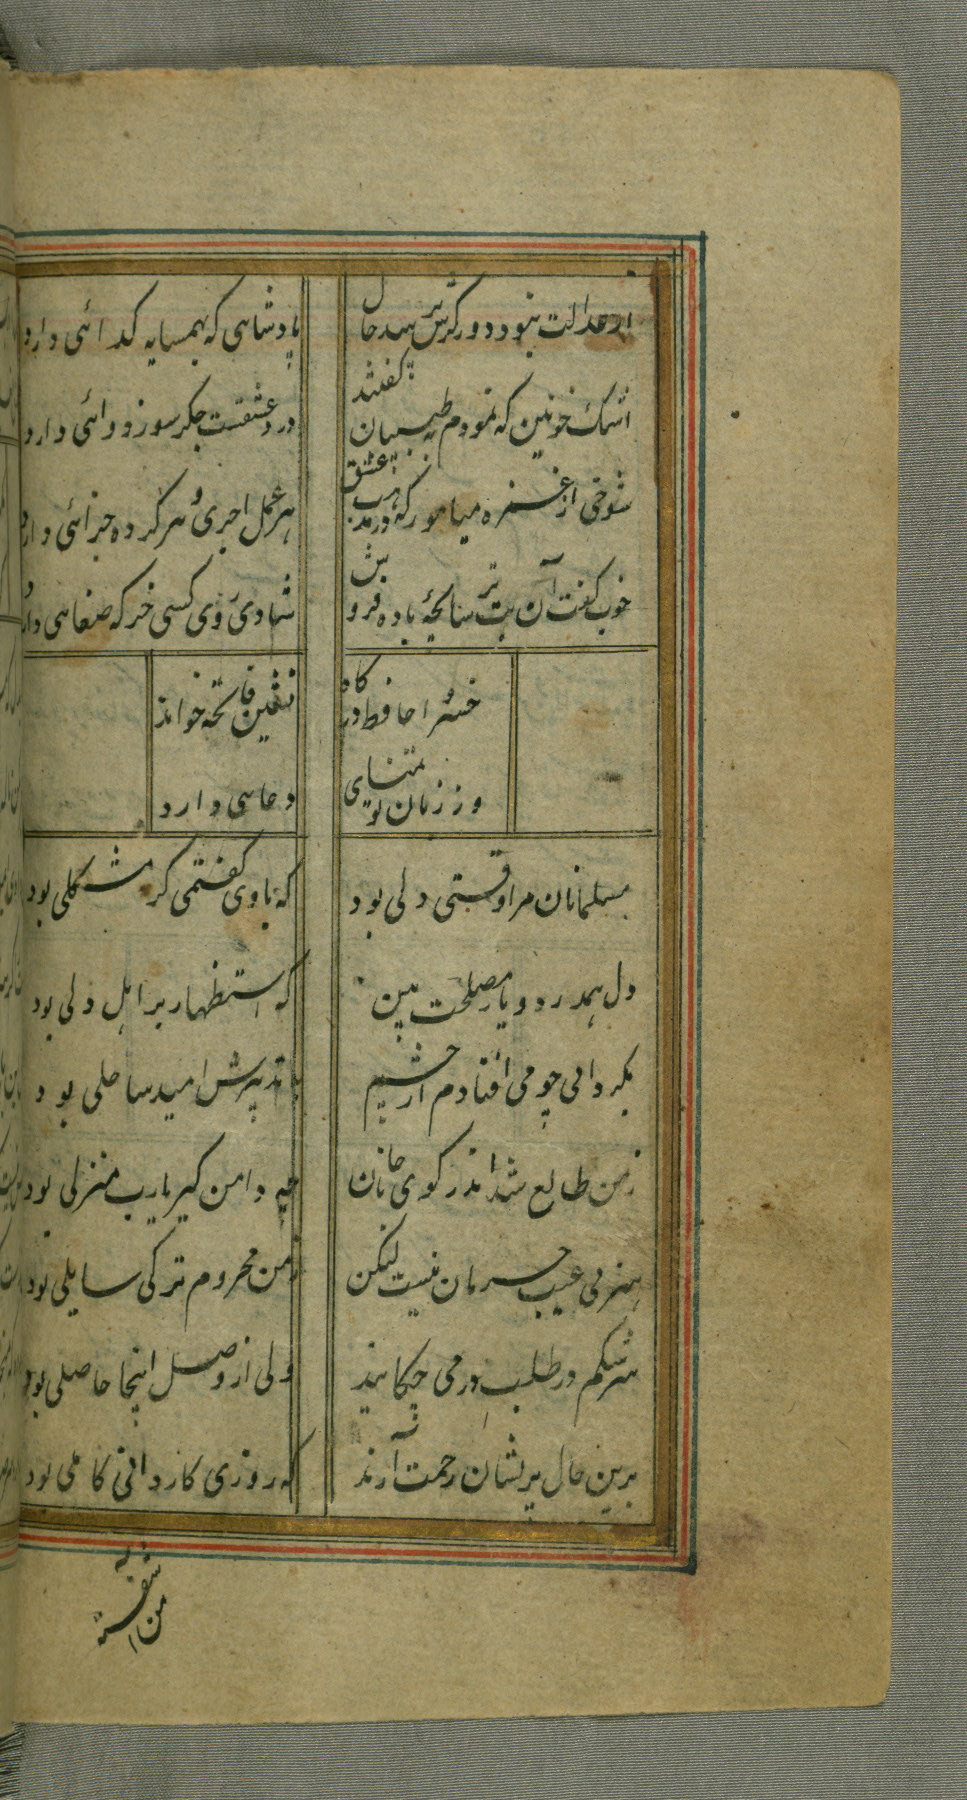 از عدالت نبود دور گرش پرسد حال پادشاهی که بهمسایه گدائی دارد
اشک خونین که نمودم بطبیبان گفتند درد عشقست جگرسوز دوائی دارد
شوخی از غمزه میاموز که در مذهب عشق هر عمل اجری و هر کرده جزائی دارد
خوب گفت آن بت ترسابچهٔ باده فروش شادی روی کسی خور که صفایی دارد
خسرا حافظ درگاه نشین فاتحه خواند
وز زبان تو تمنای دعایی دارد
مسلمانان مرا وقتی دلی بود که با وی گفتمی گر مشکلی بود
دل همدرد و یار مصلحت بین که استظهار بر اهل دلی بود
بگردابی چو می افتادم از چشم بتدبیرش امید ساحلی بود
زمن طالع شد اندر کوی جانان چه دامن گیر یارب منزلی بود
هنر بی عیب حرمان نیست لیکن زمن محروم تر کی سایلی بود
سرشکم در طلب در می چکانید ولی از وصل اینجا حاصلی بود
برین حال پریشان رحمت آرند که روزی کاردانی کاملی بود
من آشفته